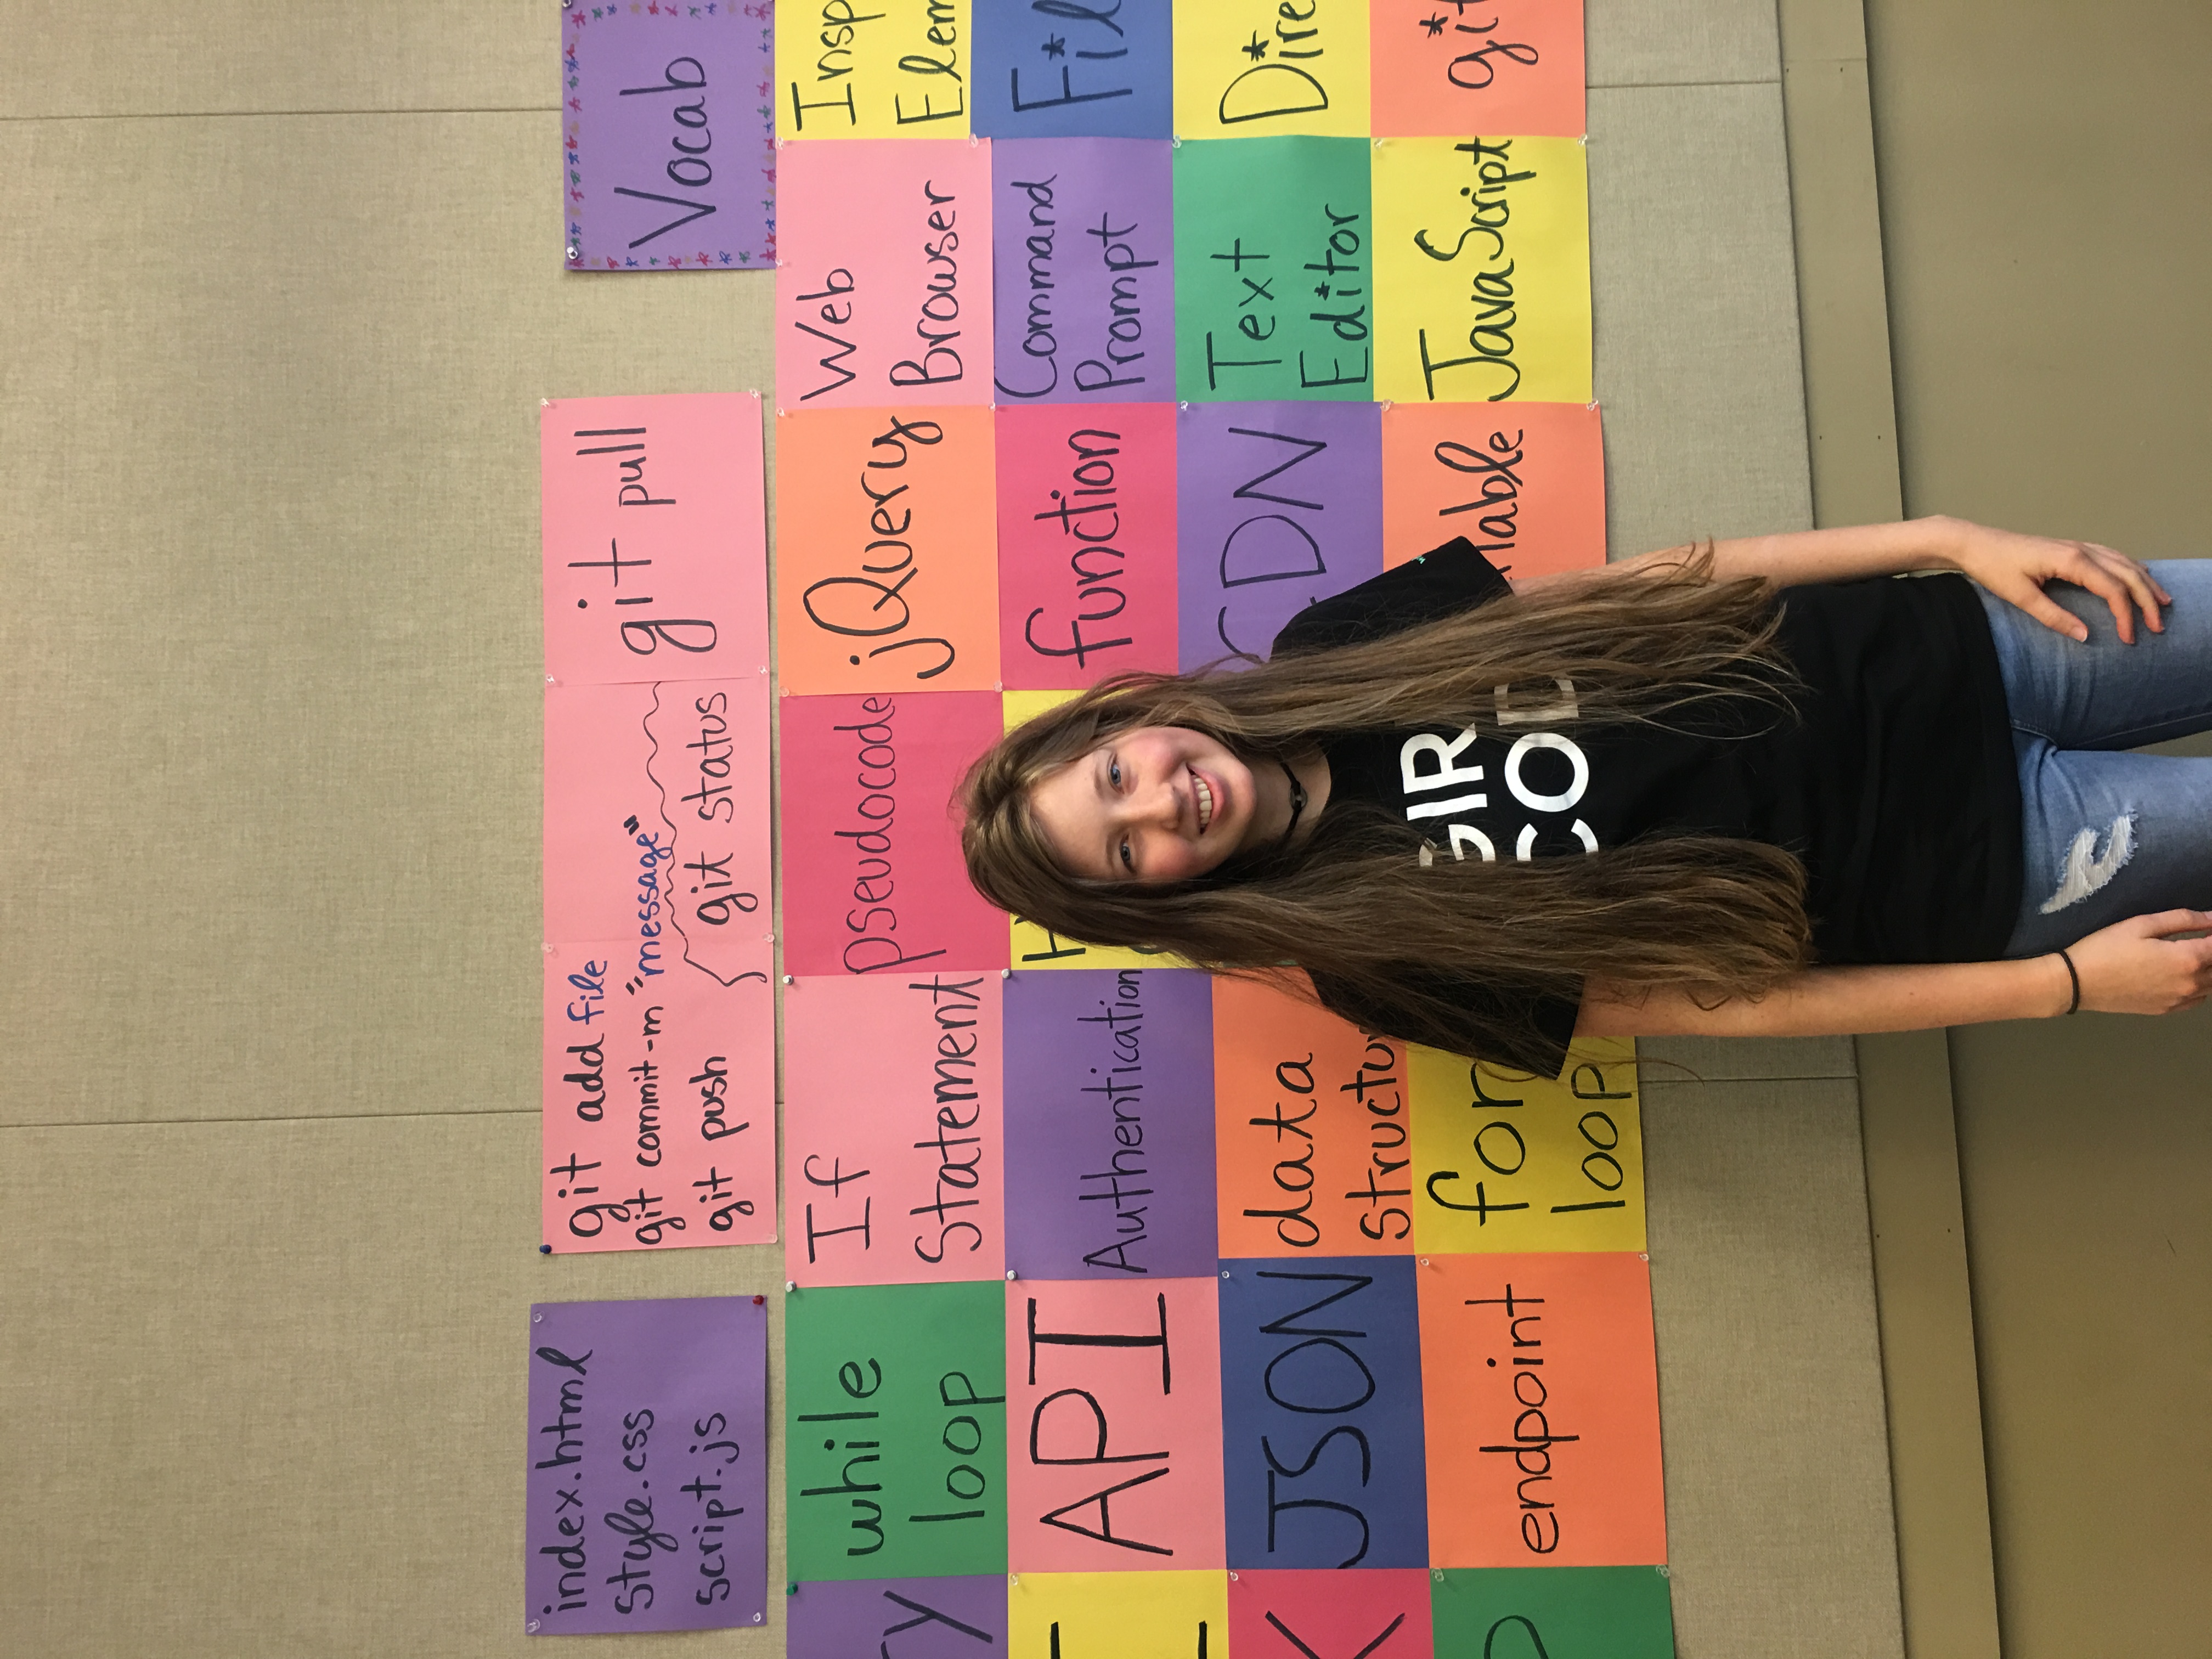 index.html
style.css
script.js
git add file
git commit -m "message"
git push
git status
git pull
Vocab
while
loop
If
Statement
pseudocode
jQuery
Web
Browser
Insp
Elem
API
Authentication
function
Command
Prompt
Fil
JSON
data
structu
CDN
Text
Editor
Dire
endpoint
for
loop
iable
JavaScript
git
GIR
COD